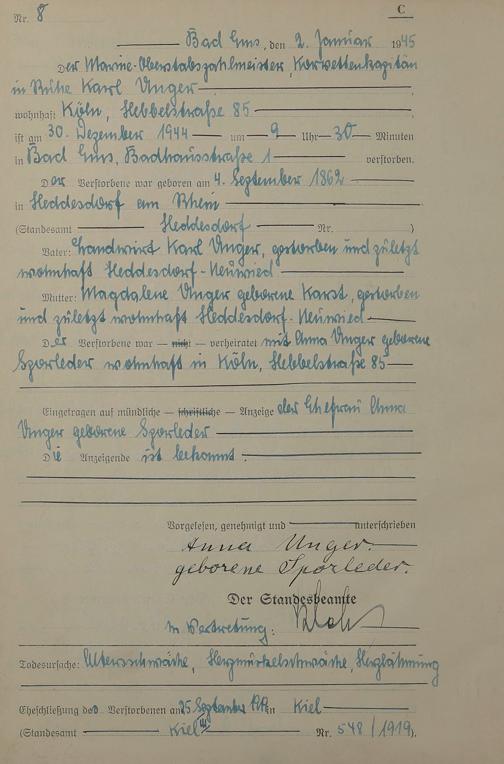 Nr. 8 C
Bad Ems, den 2. Januar 1945
Der Marine-Oberstabszahlmeister, Korvettenkapitän
in Ruhe Karl Unger
wohnhaft Köln, Hebbelstraße 85
ist am 30. Dezember 1944 um 9 Uhr 30 Minuten
in Bad Ems, Badhausstraße 1 verstorben.
Der Verstorbene war geboren am 4. September 1862
in Heddesdorf am Rhein
(Standesamt Heddesdorf Nr. )
Vater: Landwirt Karl Unger, gestorben und zuletzt
wohnhaft Heddesdorf-Neuwied
Mutter: Magdalene Unger geborene Karst, gestorben
und zuletzt wohnhaft Heddesdorf-Neuwied
Der Verstorbene war — nicht — verheiratet mit Anna Unger geborene
Sporleder wohnhaft in Köln, Hebbelstraße 85
Eingetragen auf mündliche — schriftliche — Anzeige der Ehefrau Anna
Unger geborene Sporleder
Die Anzeigende ist bekannt.
Vorgelesen, genehmigt und unterschrieben
Anna Unger.
geborene Sporleder.
Der Standesbeamte
In Vertretung:
Todesursache: Altersschwäche, Herzmuskelschwäche, Herzlähmung
Eheschließung des Verstorbenen am 25. September in Kiel
(Standesamt Kiel III Nr. 548/1919).